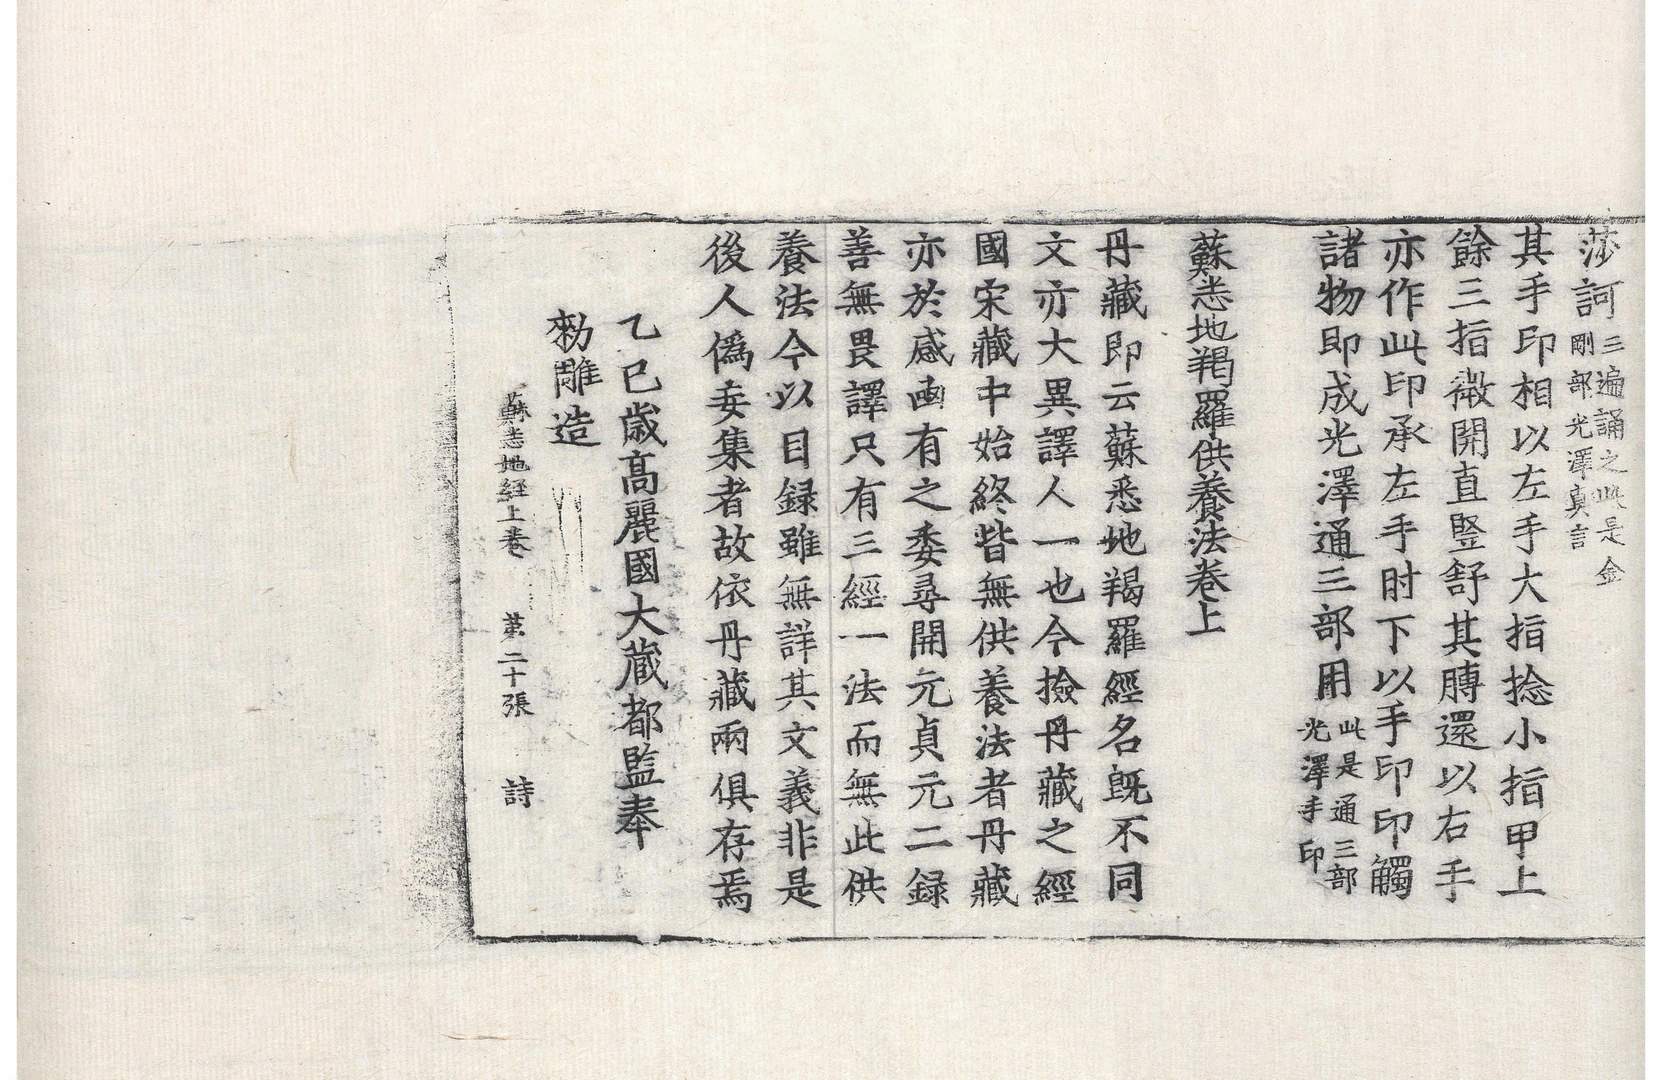 莎訶三遍誦之此是金剛部光澤真言
其手印相以左手大指捻小指甲上
餘三指微開直竪舒其膊還以右手
亦作此印承左手肘下以手印印觸
諸物即成光澤通三部用此是通三部光澤手印
蘇悉地羯羅供養法卷上
丹藏即云蘇悉地羯羅經名旣不同
文亦大異譯人一也今撿丹藏之經
國宋藏中始終皆無供養法者丹藏
亦於感函有之委尋開元貞元二録
善無畏譯只有三經一法而無此供
養法今以目録雖無詳其文義非是
後人僞妄集者故依丹藏兩俱存焉
乙巳歳高麗國大藏都監奉
勑雕造
蘇悉地經上卷 第二十張 詩